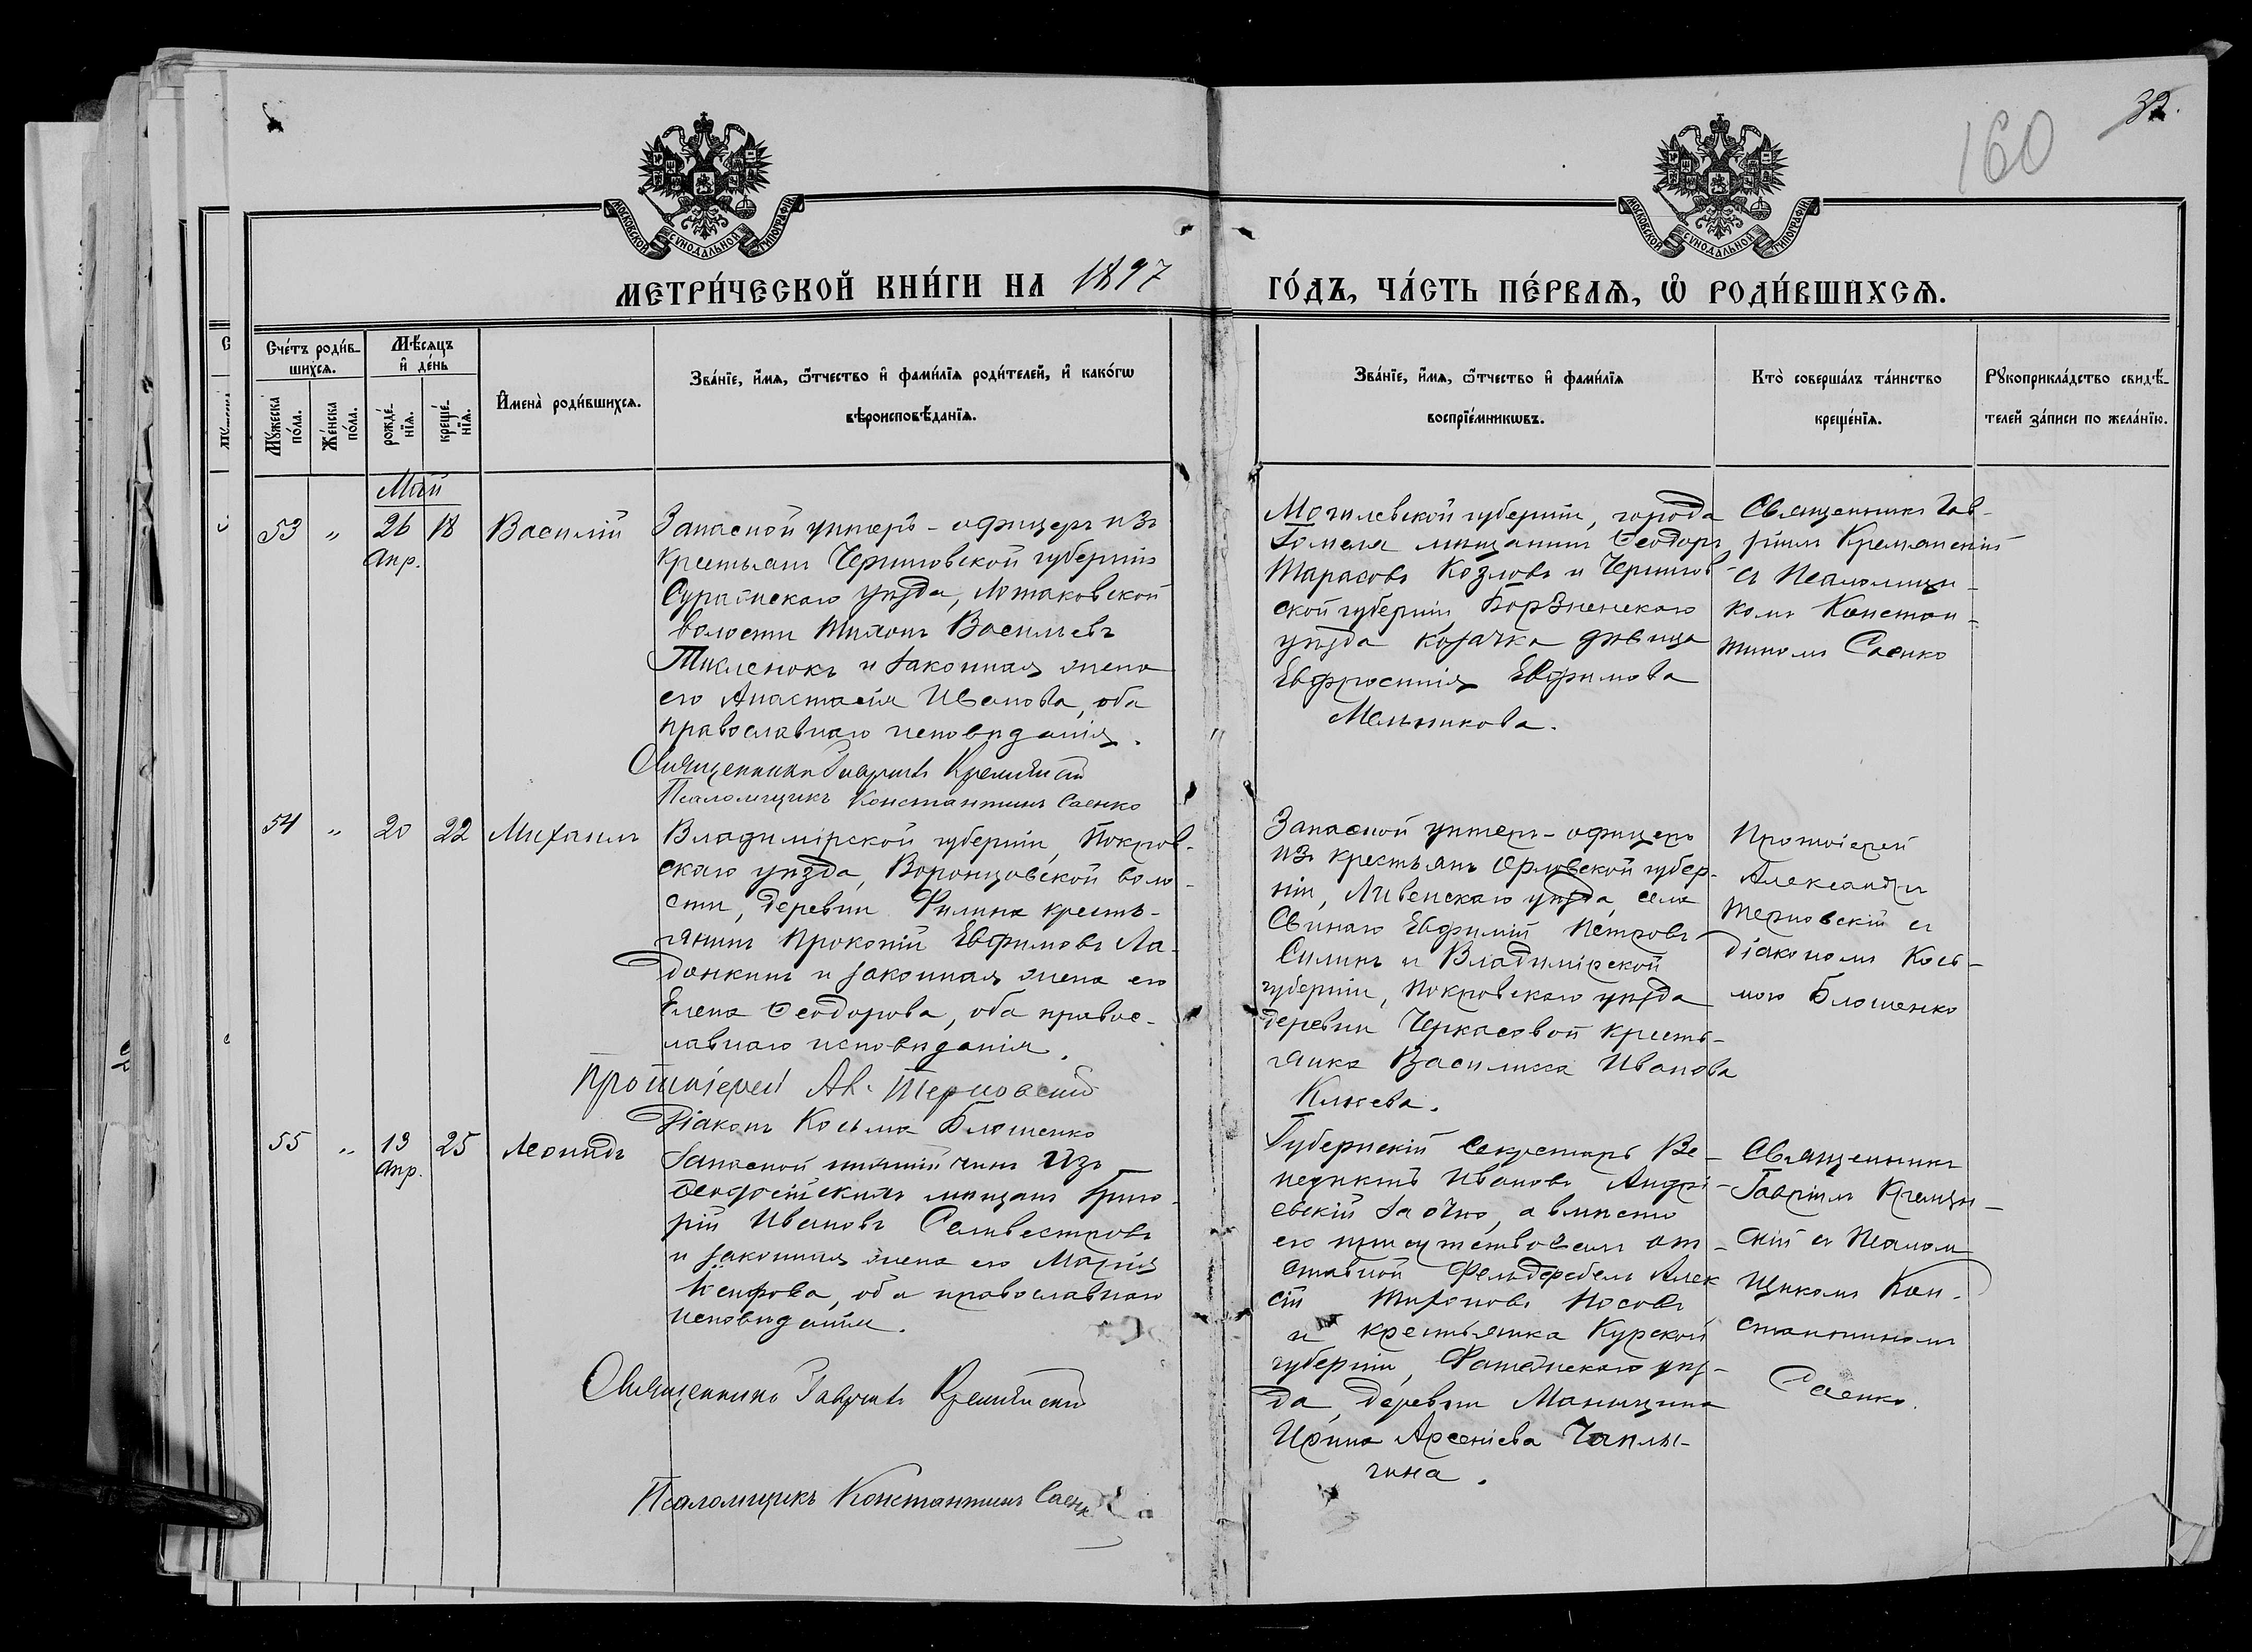 32.
160
МОСКОВСКОЙ СУНОДАЛЬНОЙ ТИПОГРАФІИ
МОСКОВСКОЙ СУНОДАЛЬНОЙ ТИПОГРАФІИ
МЕТРИ́ЧЕСКОЙ КНИ́ГИ НА 1897
ГО́ДЪ, ЧА́СТЬ ПЕ́РВАѦ, Ѡ҆ РОДИ́ВШИХСѦ.
Сче́тъ роди́в-
шихсѧ.
Мꙋ́жеска по́ла.
Же́нска по́ла.
Мѣ́сѧцъ
и҆ де́нь
рожде́-
нїѧ.
креще́-
нїѧ.
И҆мена̀ роди́вшихсѧ.
Зва́нїе, и҆́мѧ, ѻ҆́тчество и҆ фами́лїѧ роди́телей, и҆ како́гѡ
вѣроисповѣ́данїѧ.
Зва́нїе, и҆́мѧ, ѻ҆́тчество и҆ фами́лїѧ
воспрїе́мникѡвъ.
Кто̀ соверша́лъ та́инство
креще́нїѧ.
Рꙋкоприкла́дство свидѣ́-
телей за́писи по жела́нїю.
Май
53 " 26 18 Василій
Апр.
Запасной унтеръ-офицеръ изъ
крестьянъ Черниговской губерніи
Суражскаго уѣзда, Лотаковской
волости Тихонъ Васильевъ
и законная жена
его Анастасія Иванова, оба
православнаго исповѣданія.
Священникъ Гавріилъ Кремянскій
Псаломщикъ Константинъ Саенко
Могилевской губерніи, города
Гомеля мѣщанинъ Ѳеодоръ
Тарасовъ Козловъ и Чернигов-
ской губерніи, Борзненскаго
уѣзда козачка дѣвица
Евфросинія Евфимова
Мельникова.
Священникъ Гав-
ріилъ Кремянскій
съ Псаломщи-
комъ Констан-
тиномъ Саенко
54 " 20 22 Михаилъ
Владимірской губерніи, Покров-
скаго уѣзда, Воронцовской воло-
сти, деревни Филина кресть-
янинъ Прокопій Евфимовъ Ла-
донкинъ и законная жена его
Елена Ѳеодорова, оба правос-
лавнаго исповѣданія.
Протоіерей Ал. Терновскій
Діаконъ Косьма Блошенко
Запасной унтеръ-офицеръ
изъ крестьянъ Орловской губер-
ніи, Ливенскаго уѣзда, села
Свинаго Евфимій Петровъ
Силинъ и Владимірской
губерніи, Покровскаго уѣзда
деревни Черкасовой кресть-
янка Василисса Иванова
Клюева.
Протоіерей
Александръ
Терновскій съ
діакономъ Кось-
мою Блошенко
55 " 19 25 Леонидъ
Апр.
Запасной нижній чинъ изъ
Ѳеодосійскихъ мѣщанъ Григо-
рій Ивановъ Селивестровъ
и законная жена его Марія
оба православнаго
исповѣданія.
Священникъ Гавріилъ Кремянскій
Псаломщикъ Константинъ Саенко
Губернскій Секретарь Ве-
недиктъ Ивановъ Андрі-
евскій заочно, а вмѣсто
его присутствовалъ от-
ставной Фельдфебель Алек
сій Тихоновъ Носовъ
и крестьянка Курской
губерніи, Фатежскаго уѣз-
да, деревни
Ирина Арсеніева Чаплы-
гина.
Священникъ
Гавріилъ Кремян-
скій съ Псалом
щикомъ Кон-
стантиномъ
Саенко.